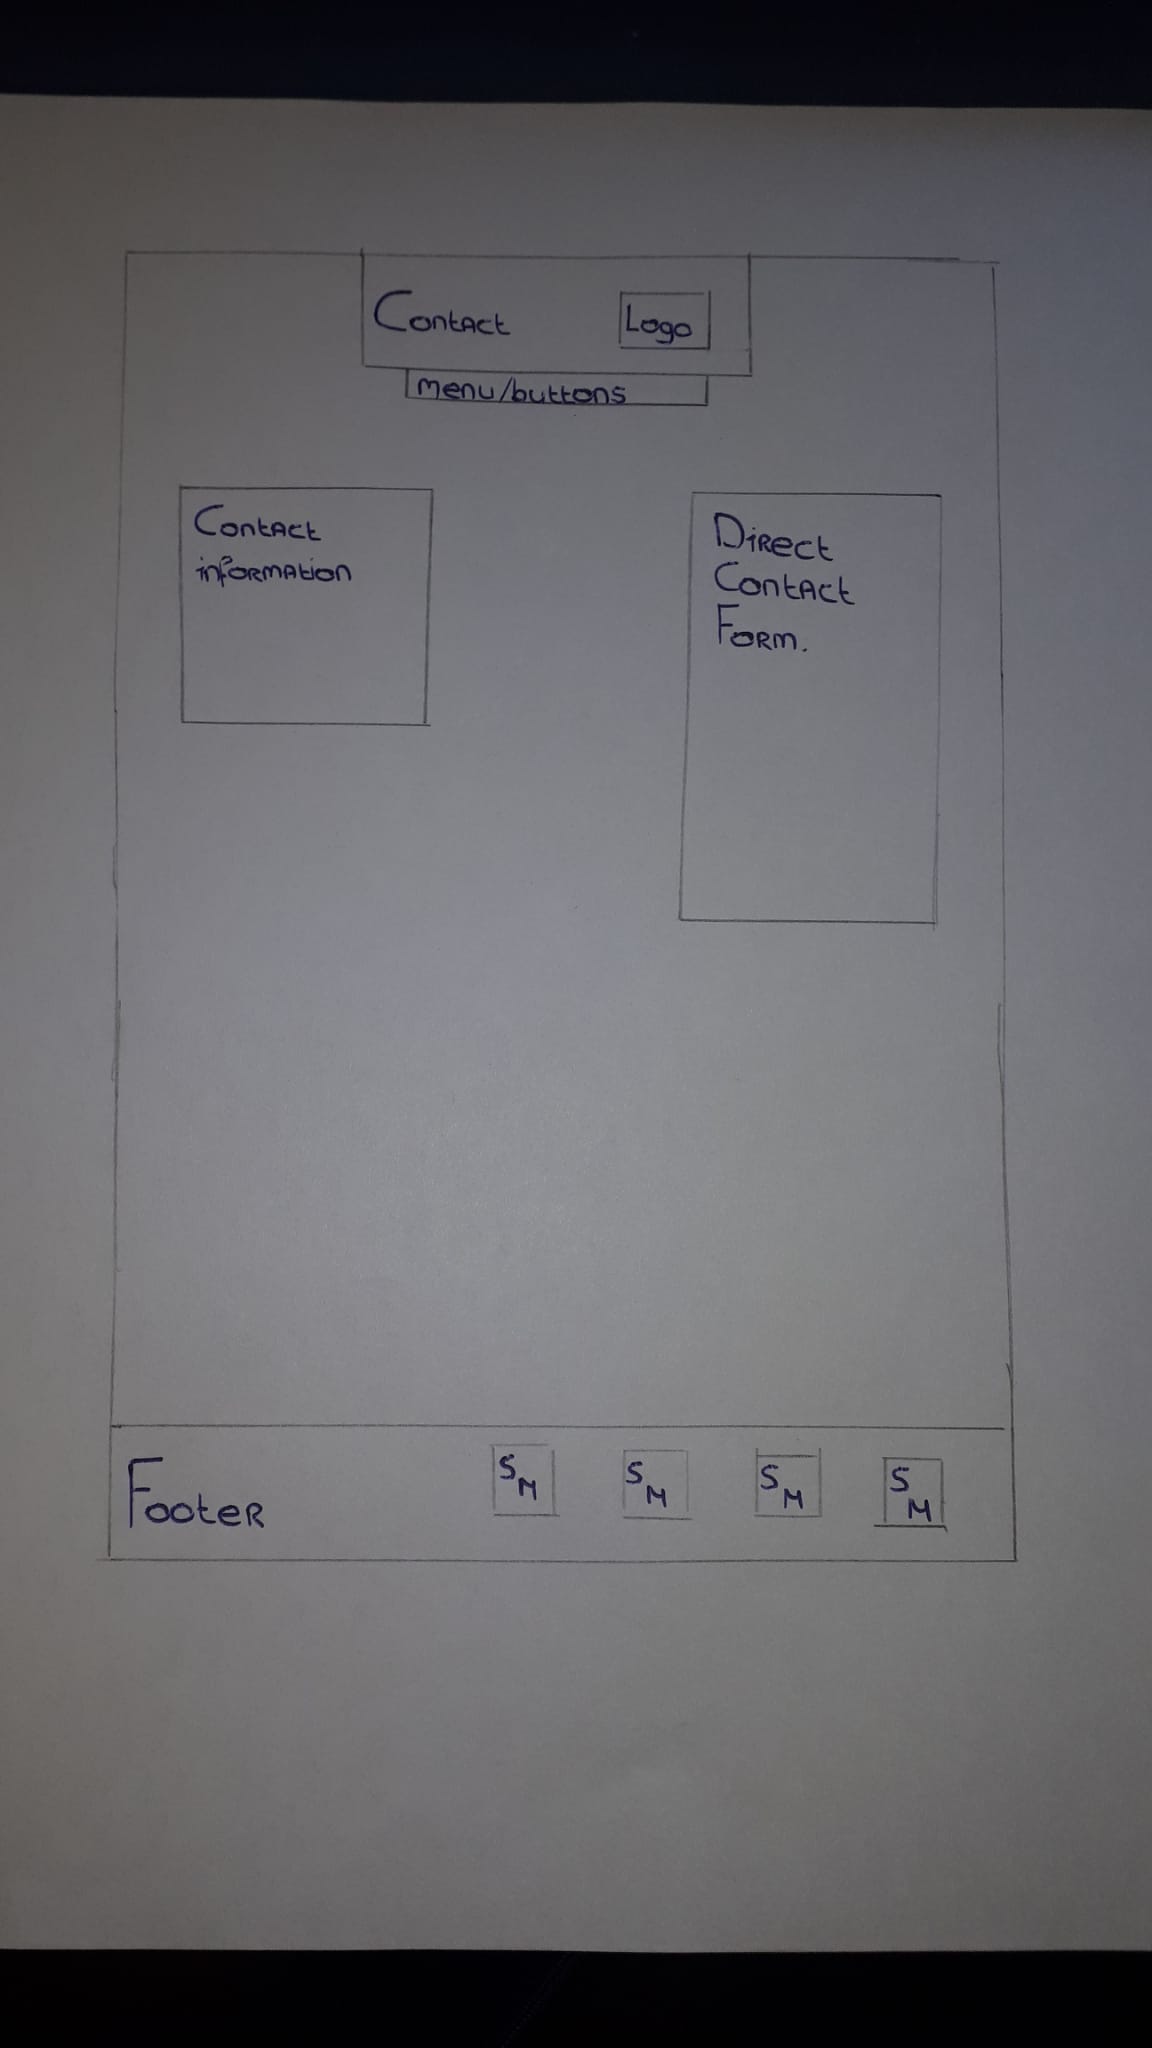 Contact
Logo
menu/buttons
Contact
information
Direct
Contact
Form.
Footer
S
M
S
M
S
M
S
M